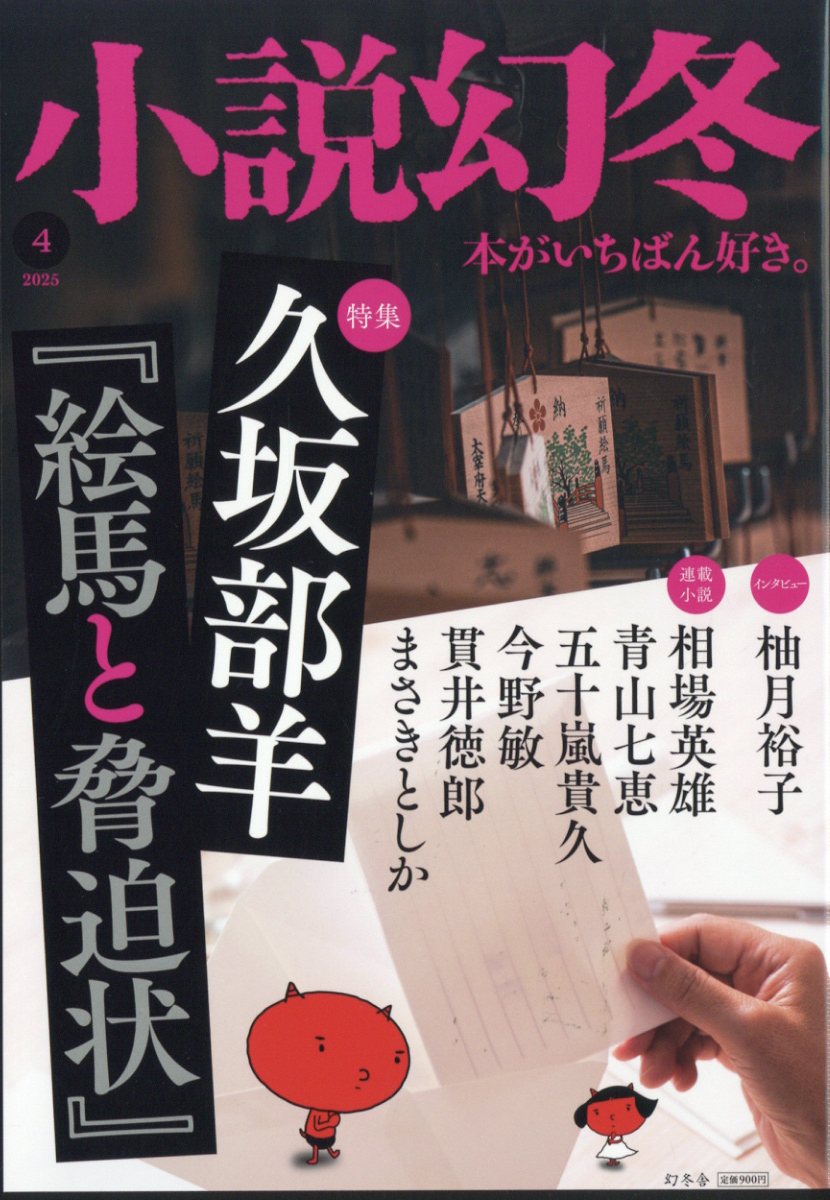 小説幻冬
4
2025
本がいちばん好き。
特集
久坂部羊
『絵馬と脅迫状』
インタビュー
柚月裕子
連載
小説
相場英雄
青山七恵
五十嵐貴久
今野敏
貫井徳郎
まさきとしか
奉納
祈願絵馬
太宰府天
祈願絵馬
祈願絵馬
幻冬舎
定価900円